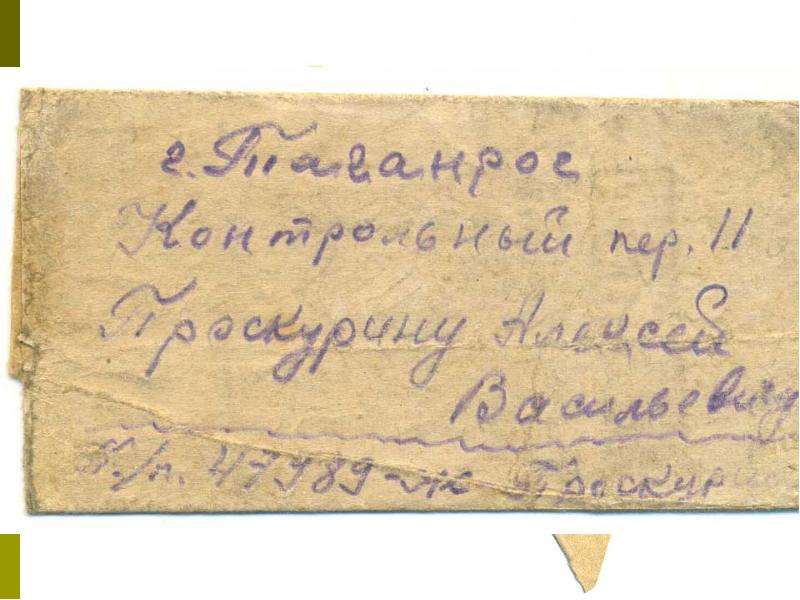 г. Таганрог
Контрольный пер. 11
Проскурину Алексей
Васильевичу
П/п. 47989-ж Проскур